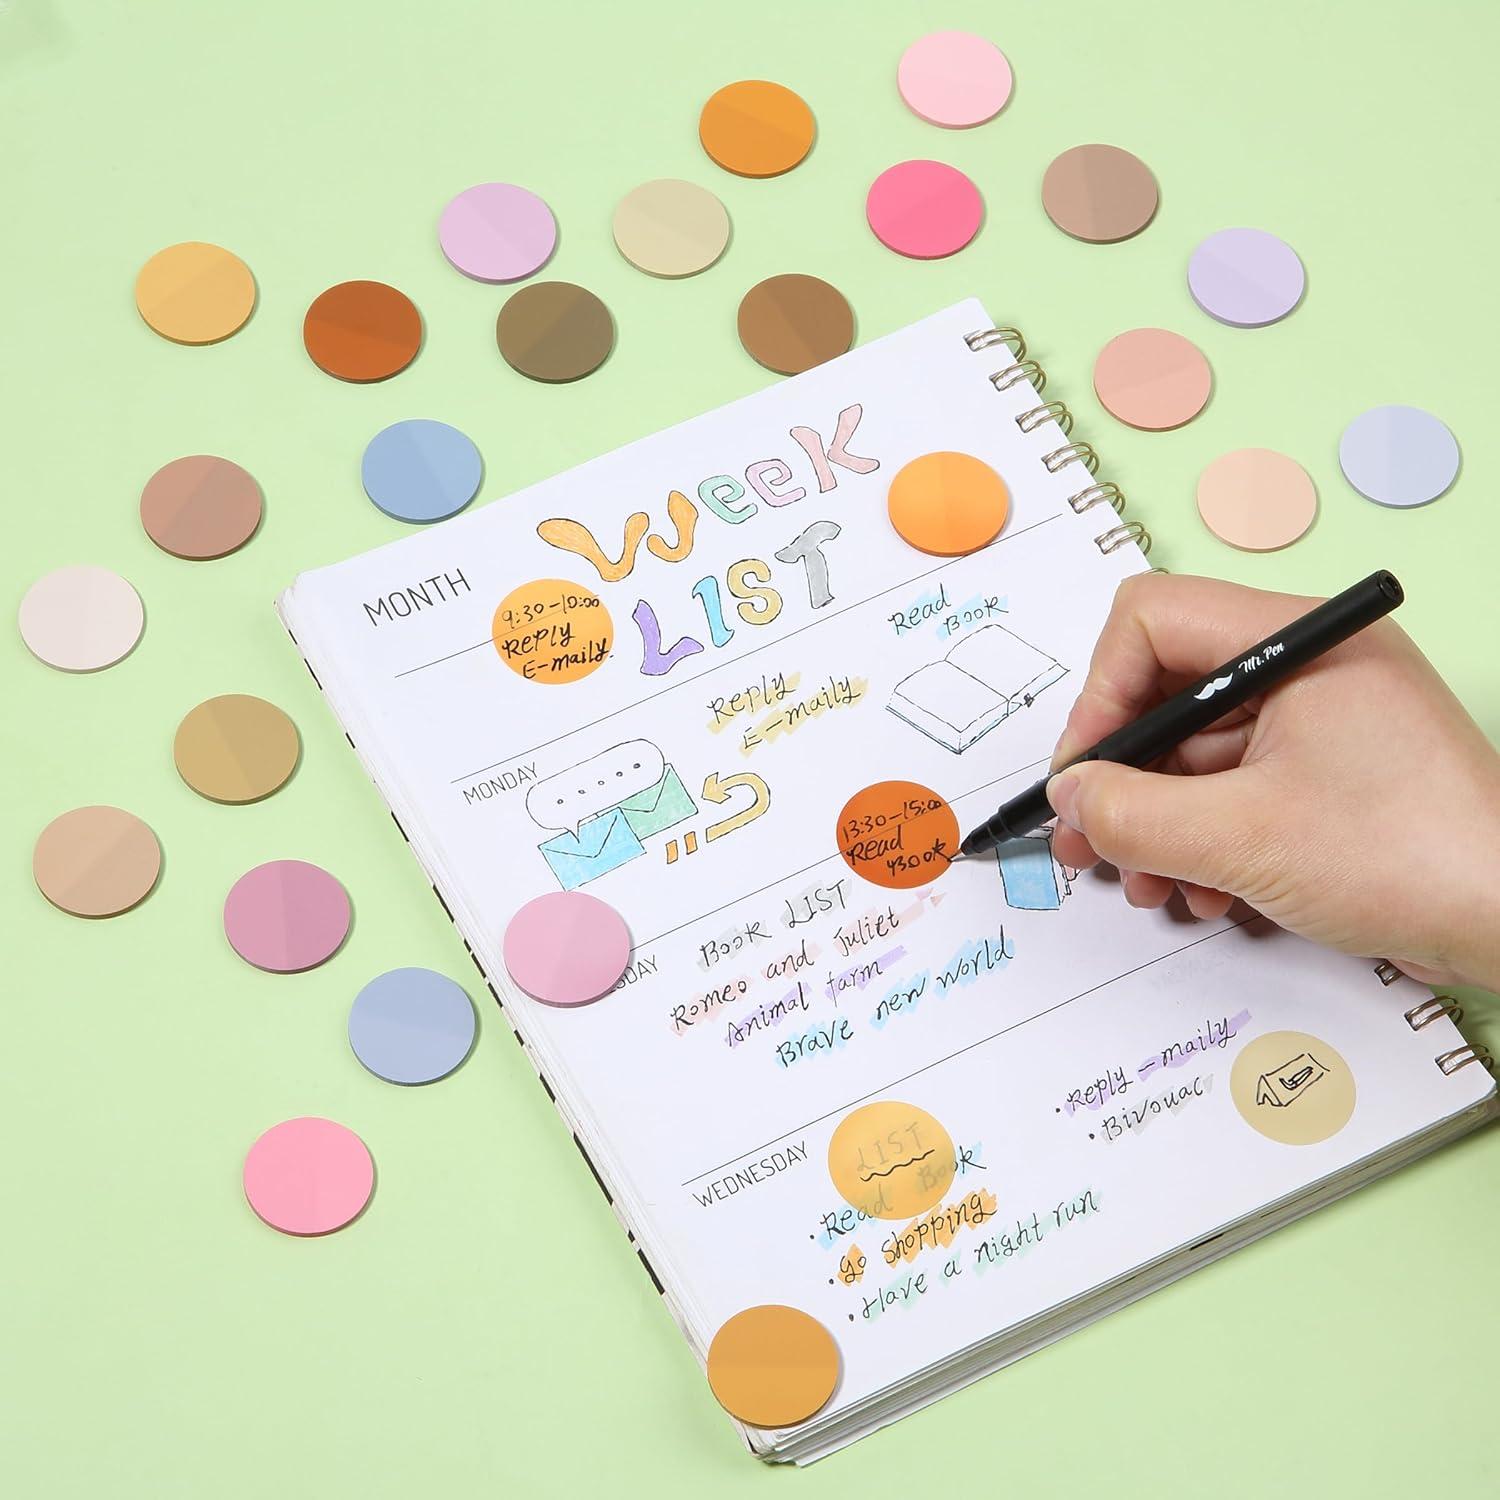 Week
LIST
MONTH
9:30-10:00
REPLY
E-maily.
Read
Book
Reply
E-maily
MONDAY
Mr.Pen
13:30-15:00
Read
Book
Book LIST
Romeo and Juliet
Animal farm
Brave new world
SDAY
WEDNESDAY
LIST
• Read Book
• Go shopping
• Have a night run
• Reply -maily
• Bivouac